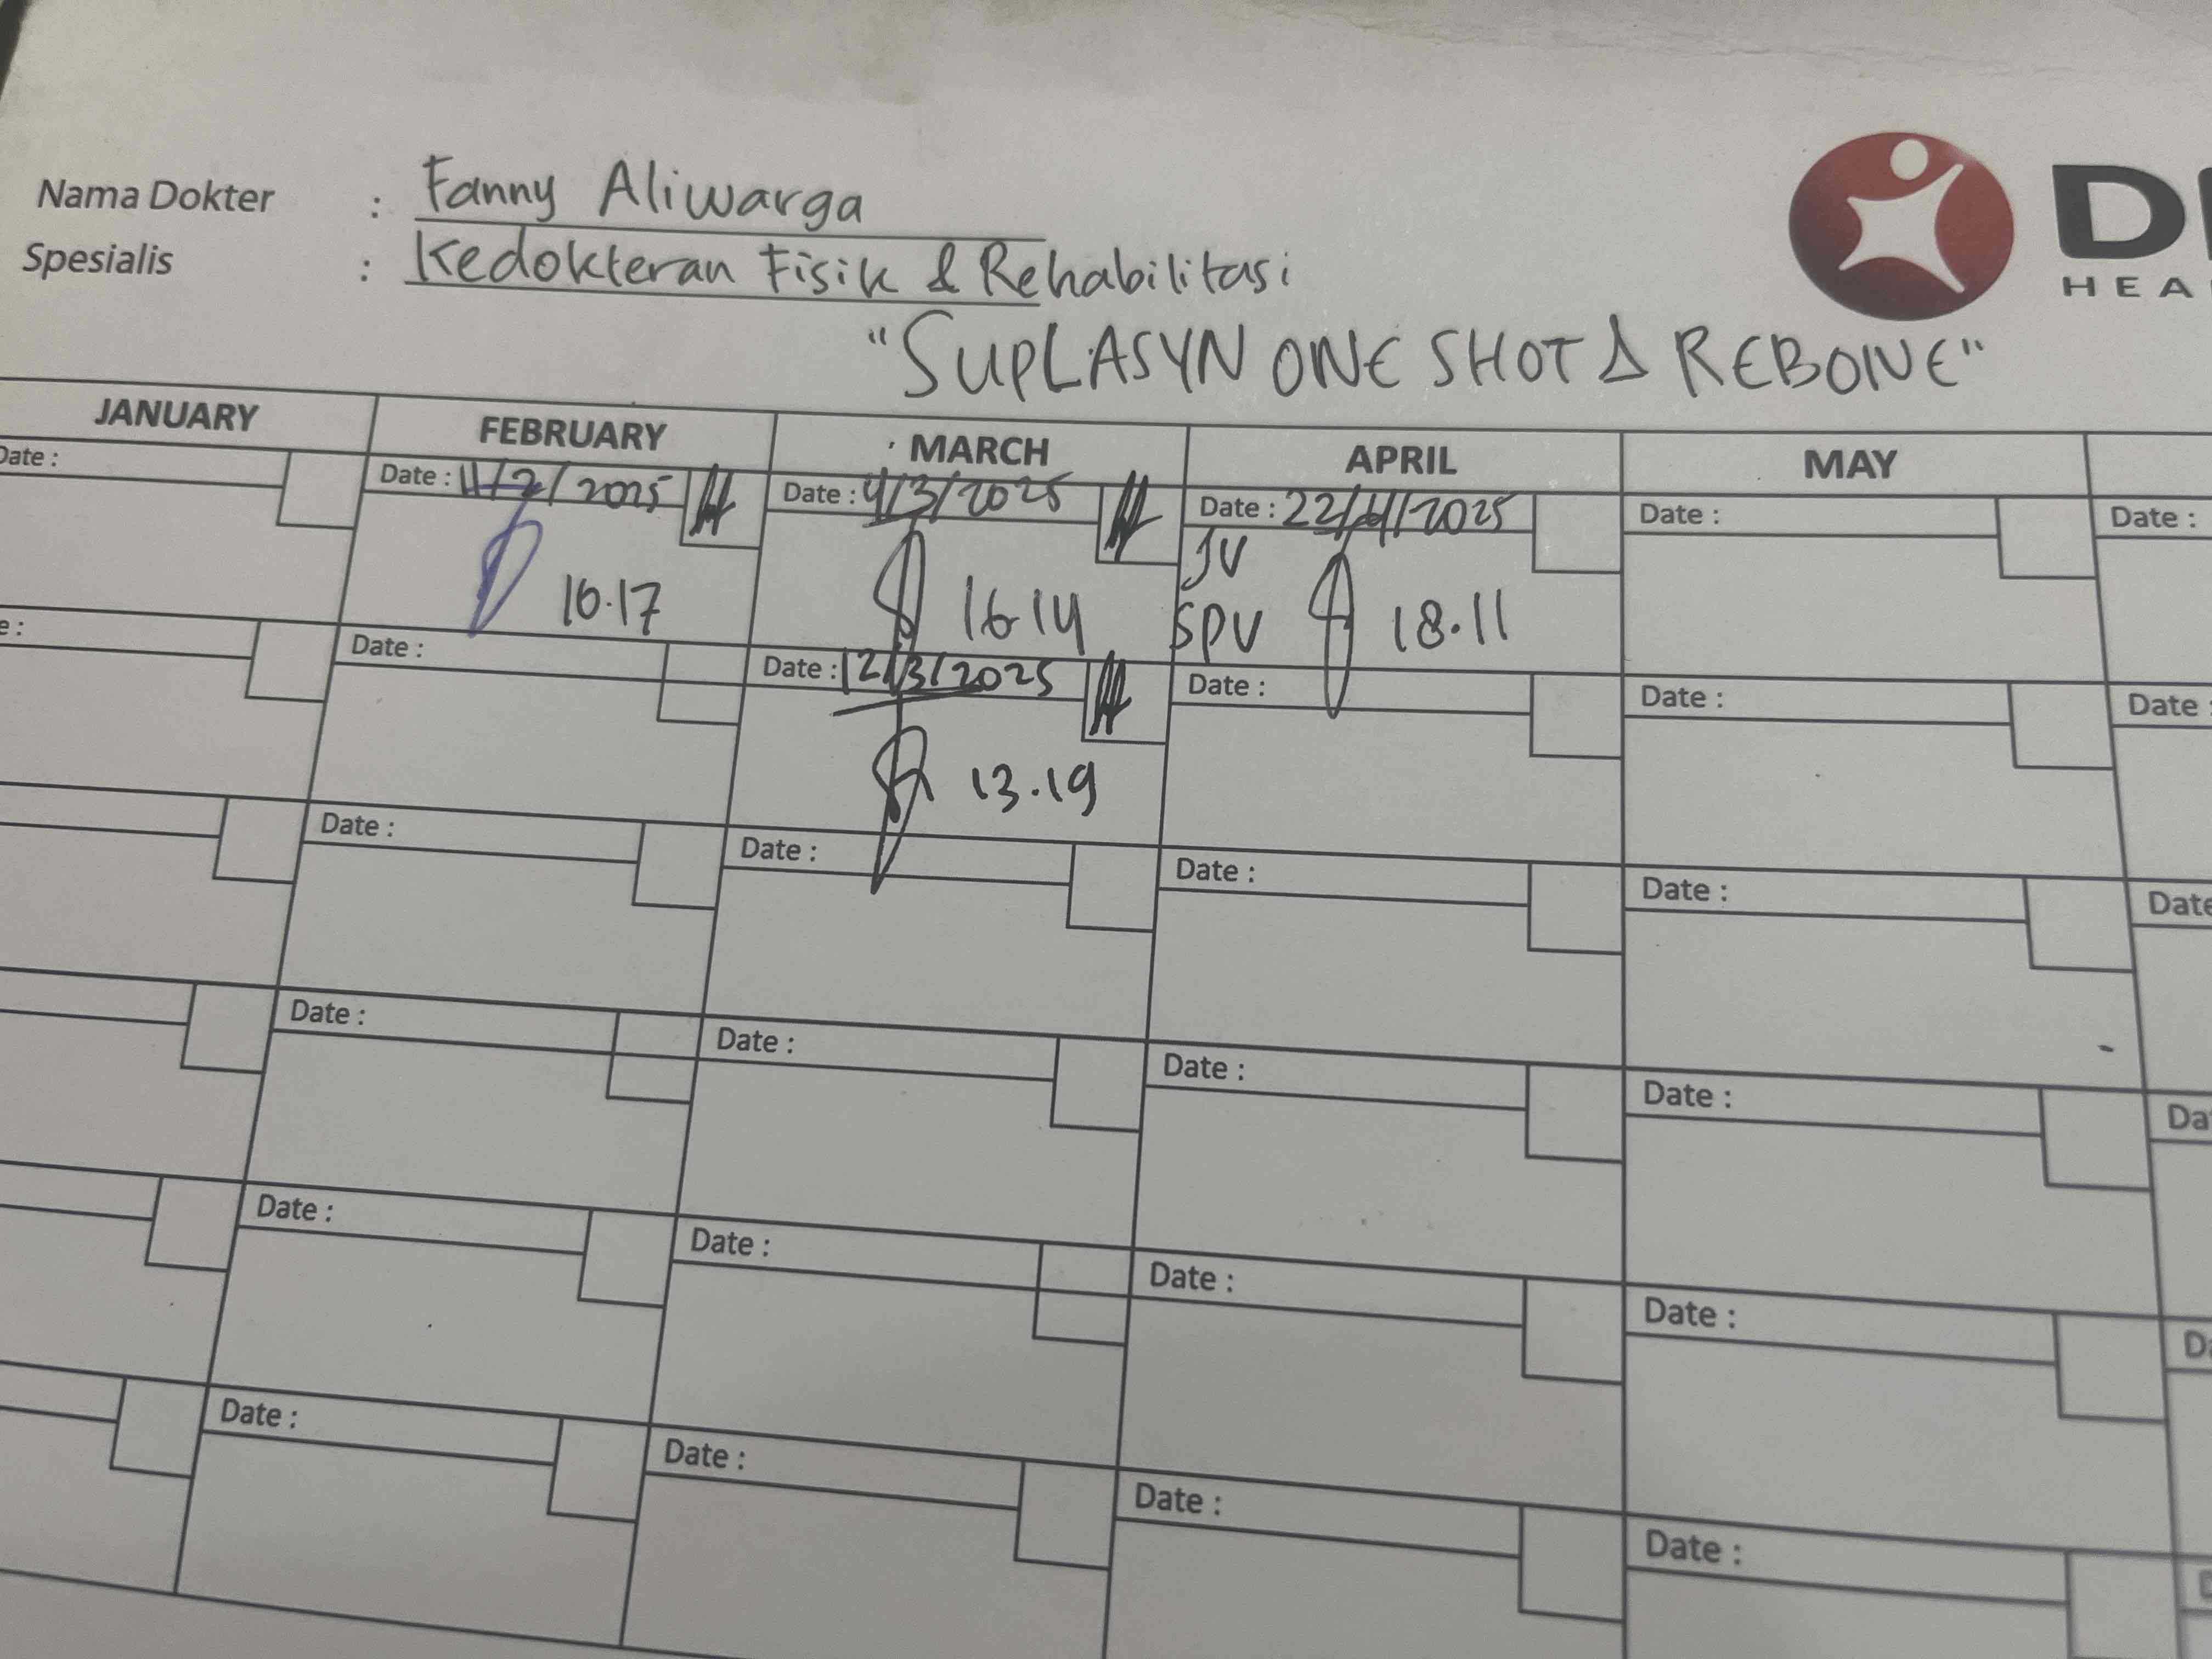 Nama Dokter : Fanny Aliwarga
Spesialis : Kedokteran Fisik & Rehabilitasi
HEA
"SUPLASYN ONE SHOT & REBONE"
JANUARY FEBRUARY MARCH APRIL MAY
Date : Date : 11/2/2025 Date : 4/3/2025 Date : 22/4/2025 Date : Date :
JV
10.17 16.14 SPV 18.11
e : Date : Date : 12/3/2025 Date : Date : Date :
13.19
Date : Date : Date : Date : Date
Date : Date : Date : Date : Da
Date : Date : Date : Date : Da
Date : Date : Date : Date :